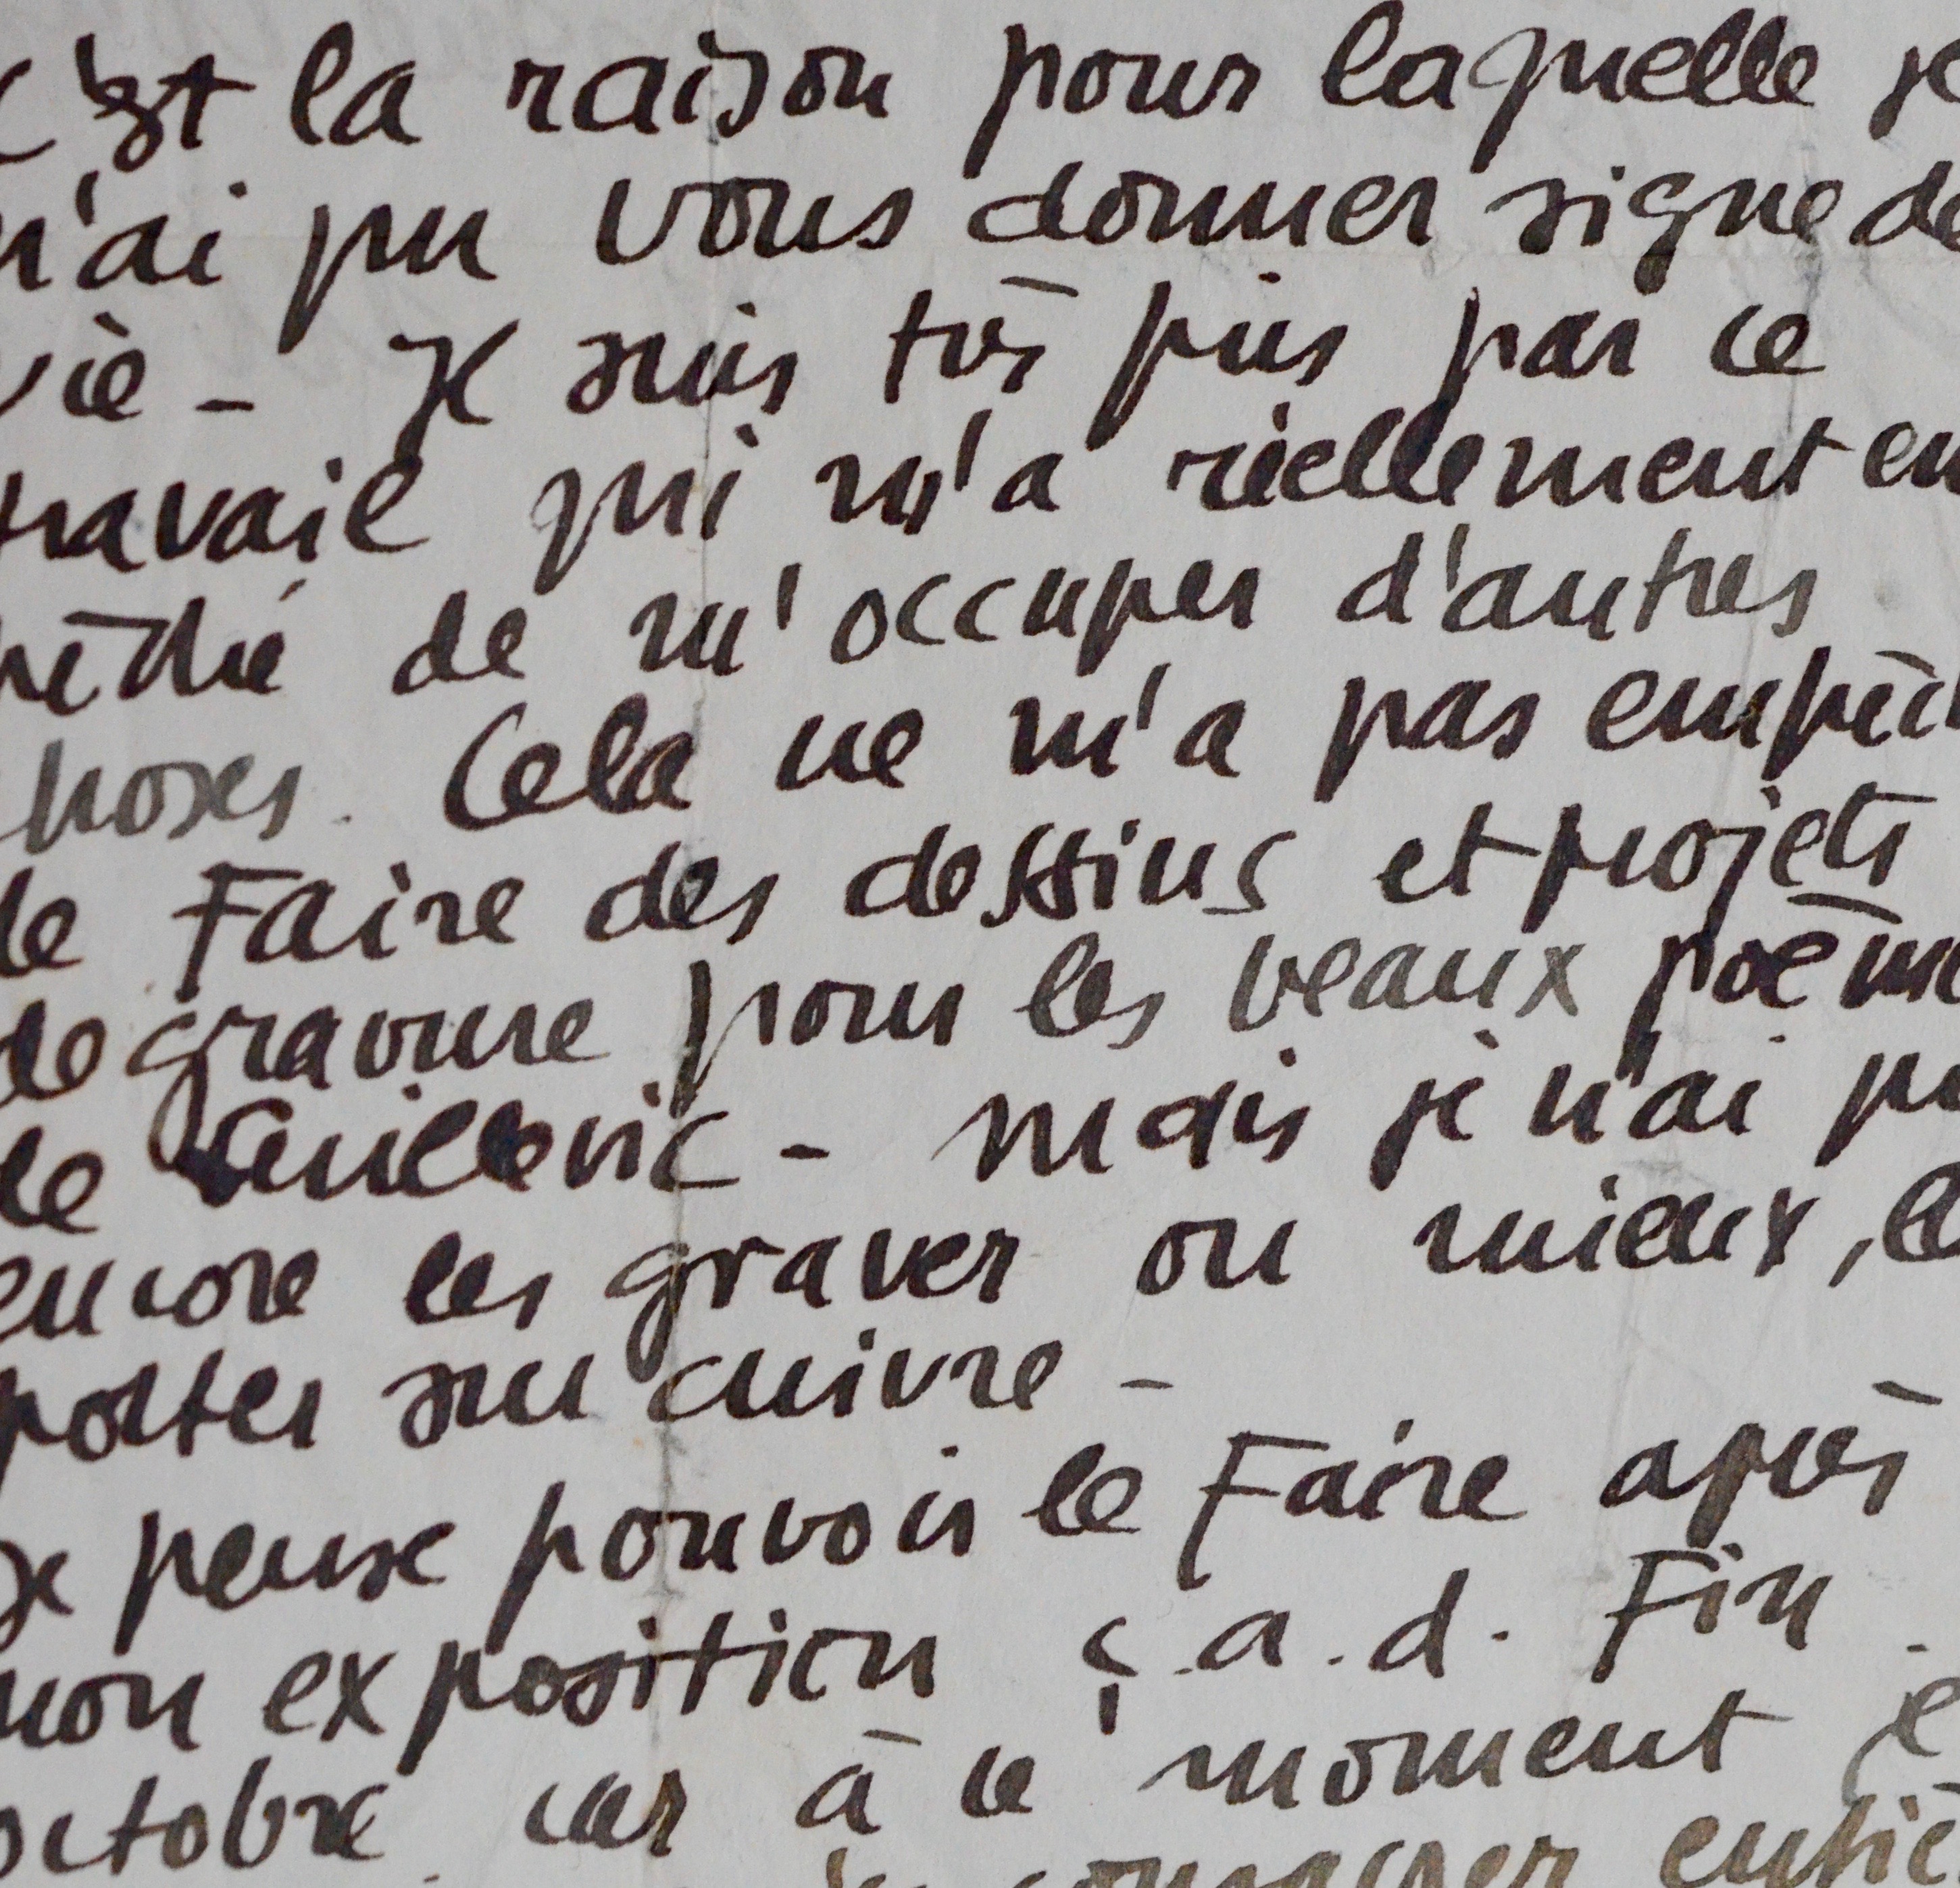 c'est la raison pour laquelle je
n'ai pu vous donner signe de
vie - Je suis très pris par ce
travail qui m'a réellement em
pêché de m'occuper d'autres
choses. Cela ne m'a pas empêc
de Faire des dessins et projets
de gravure pour les beaux poèm
de Guillevic - mais je n'ai pu
encore les graver ou mieux, le
porter sur cuivre -
Je pense pouvoir le Faire après
mon exposition ç.a.d. Fin
octobre car à ce moment je
consacrer entiè